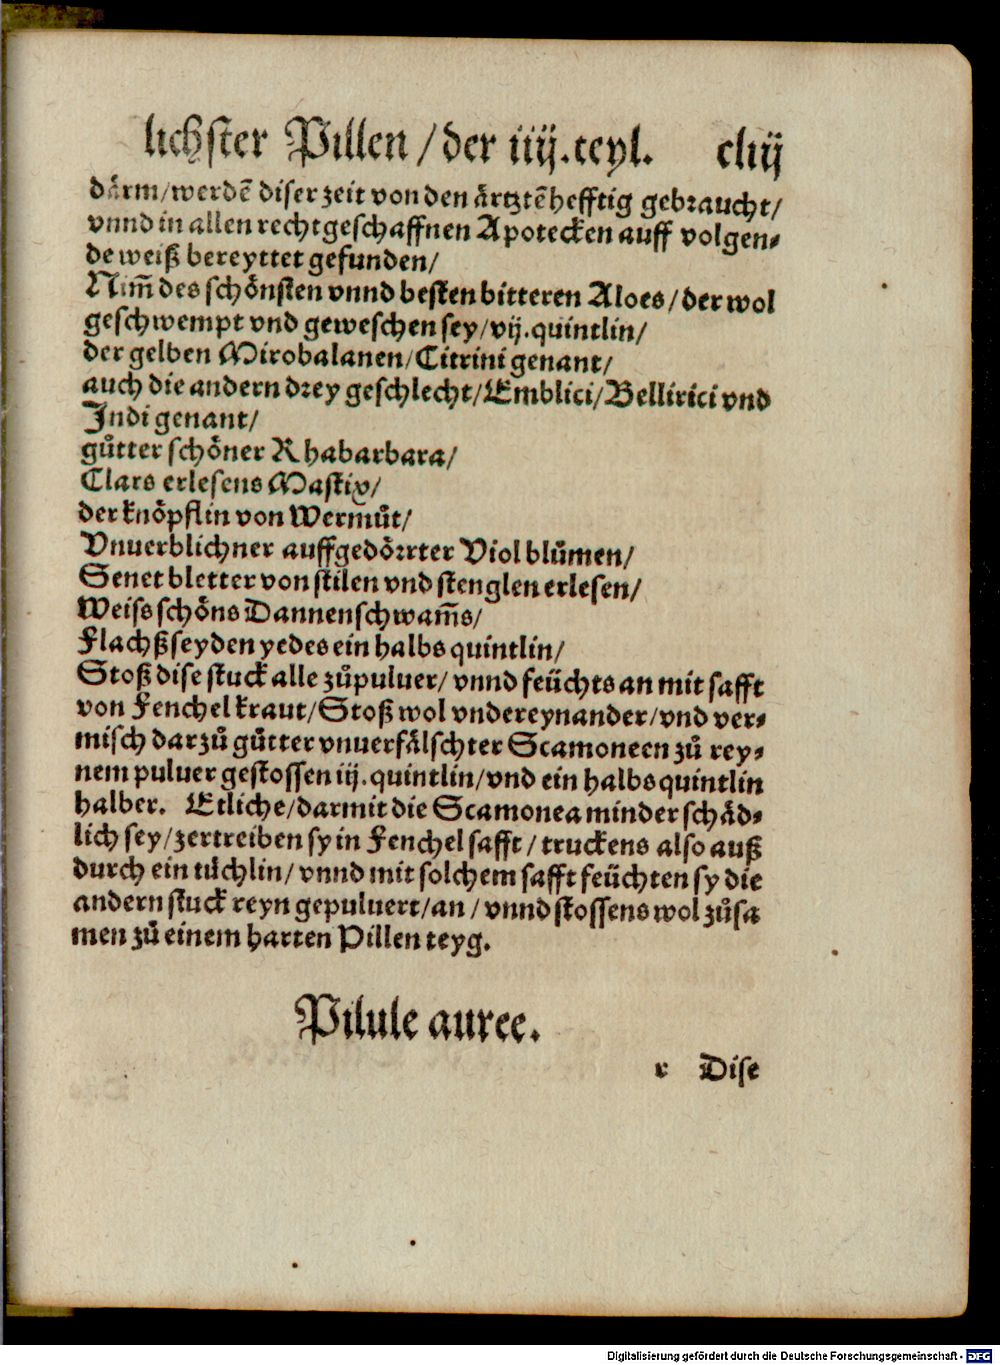 lichster Pillen / der iiij. teyl. cliij
därm / werdē diser zeit von den ärtztē hefftig gebraucht /
vnnd in allen rechtgeschaffnen Apotecken auff volgen⸗
de weiß bereyttet gefunden /
Nim̄ des schönsten vnnd besten bitteren Aloes / der wol
geschwempt vnd geweschen sey / vij. quintlin /
der gelben Mirobalanen / Citrini genant /
auch die andern drey geschlecht / Emblici / Bellirici vnd
Indi genant /
gůtter schöner Rhabarbara /
Clars erlesens Mastix /
der knöpflin von Wermůt /
Vnuerblichner auffgedörrter Viol blůmen /
Senet bletter von stilen vnd stenglen erlesen /
Weiss schöns Dannenschwam̄s /
Flachßseyden yedes ein halbs quintlin /
Stoß dise stuck alle zůpuluer / vnnd feüchts an mit safft
von Fenchel kraut / Stoß wol vndereynander / vnd ver⸗
misch darzů gůtter vnuerfälschter Scamoneen zů rey⸗
nem puluer gestossen iij. quintlin / vnd ein halbs quintlin
halber. Etliche / darmit die Scamonea minder schäd⸗
lich sey / zertreiben sy in Fenchel safft / truckens also auß
durch ein tüchlin / vnnd mit solchem safft feüchten sy die
andern stuck reyn gepuluert / an / vnnd stossens wol zůsa
men zů einem harten Pillen teyg.
Pilule auree.
r Dise
Digitalisierung gefördert durch die Deutsche Forschungsgemeinschaft - DFG